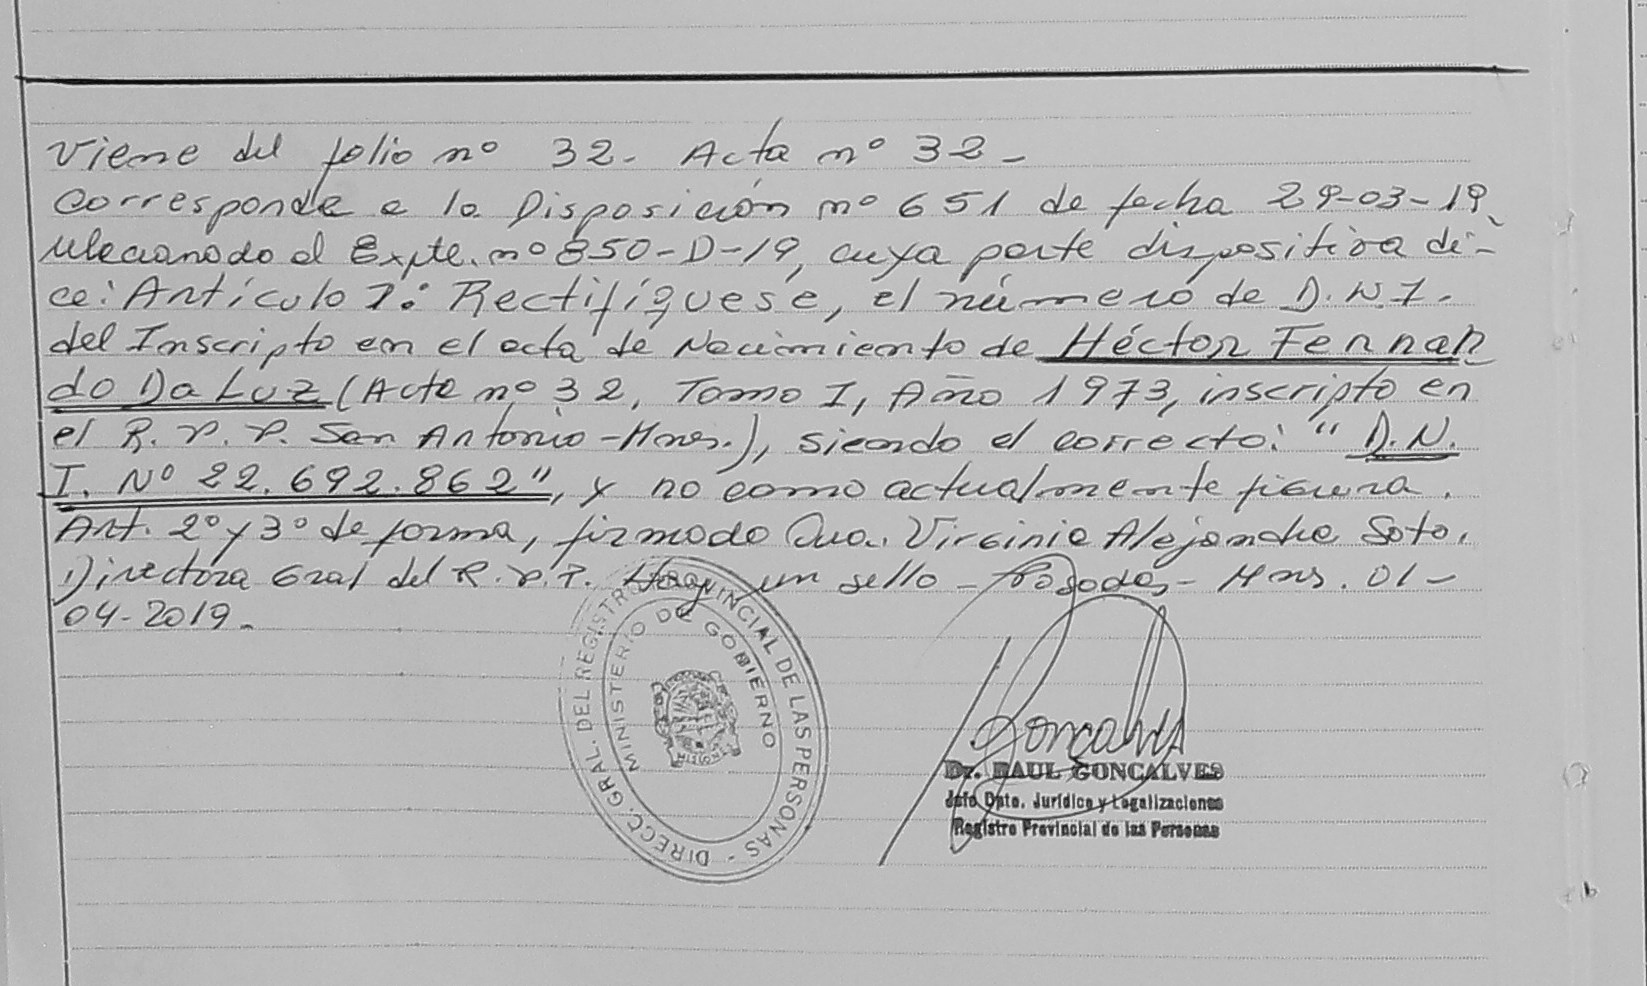 Viene del folio nº 32. Acta nº 32-
Corresponde a la Disposición nº 651 de fecha 29-03-19,
relacionado al Expte. nº 850-D-19, cuya parte dispositiva di-
ce: Artículo 1: Rectifíquese, el número de D.N.I.
del Inscripto en el acta de Nacimiento de Héctor Fernan
do Da Luz (Acta nº 32, Tomo I, Año 1973, inscripto en
el R.P.P. San Antonio-Mnes.), siendo el correcto: "D.N.
I. Nº 22.692.862", y no como actualmente figura.
Art. 2º y 3º de forma, firmado Virginia Alejandra Soto,
Directora Gral del R.P.P. Hay un sello - Posadas - Mns. 01-
04-2019.
DIRECC. GRAL. DEL REGISTRO PROVINCIAL DE LAS PERSONAS -
MINISTERIO DE GOBIERNO
MISIONES
Goncalves
Dr. RAUL GONCALVES
Jefe Dpto. Jurídico y Legalizaciones
Registro Provincial de las Personas